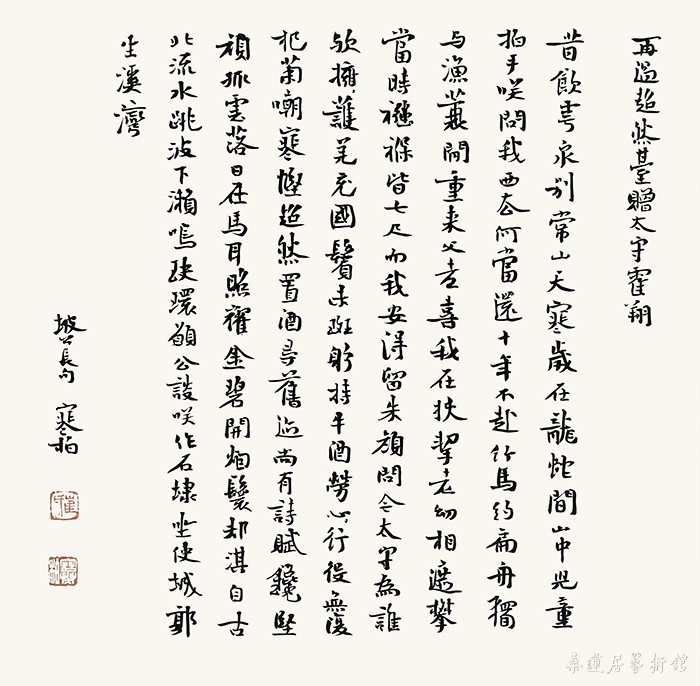 再過超然臺贈太守霍翔
昔飲雩泉別常山天寒歲在龍蛇間山中兒童
拍手咲問我西去何當還十年不赴竹馬約扁舟獨
与漁蓑閒重来父老喜我在扶挈老幼相遮攀
當時襁褓皆七尺而我安得留朱顏問今太守為誰
歟擁護羌充國鬢未斑躬持牛酒勞心行役無復
杞菊嘲寒慳超然置酒尋舊迹尚有詩賦鑱堅
頑孤雲落日在馬耳照耀金碧開烟鬟郟淇自古
北流水跳波下瀨鳴玦環願公談咲作石埭坐使城郭
生溪灣
坡公長句 寒柏
桑蓮居藝術館